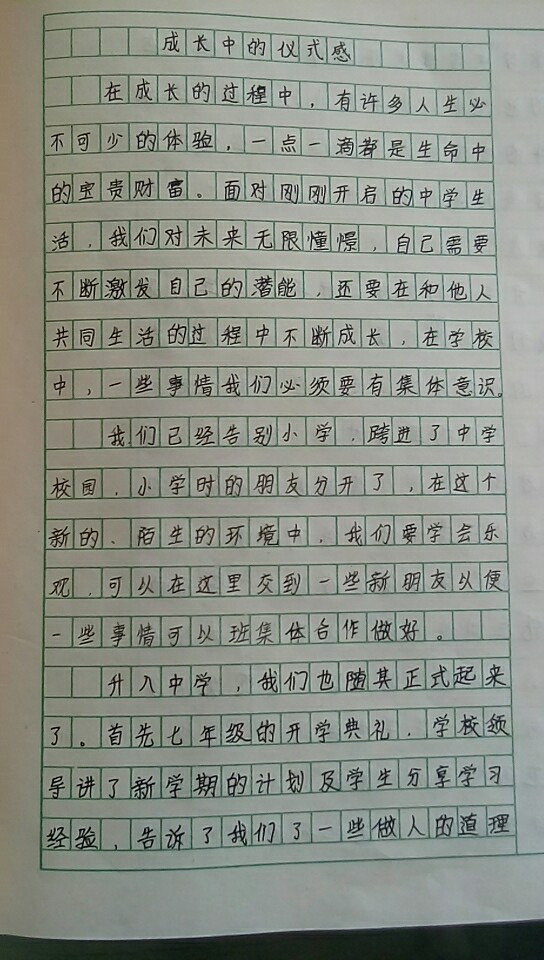 成长中的仪式感
在成长的过程中，有许多人生必
不可少的体验，一点一滴都是生命中
的宝贵财富。面对刚刚开启的中学生
活，我们对未来无限憧憬，自己需要
不断激发自己的潜能，还要在和他人
共同生活的过程中不断成长，在学校
中，一些事情我们必须要有集体意识。
我们已经告别小学，跨进了中学
校园，小学时的朋友分开了，在这个
新的、陌生的环境中，我们要学会乐
观，可以在这里交到一些新朋友以便
一些事情可以班集体合作做好。
升入中学，我们也随其正式起来
了。首先七年级的开学典礼，学校领
导讲了新学期的计划及学生分享学习
经验，告诉了我们了一些做人的道理